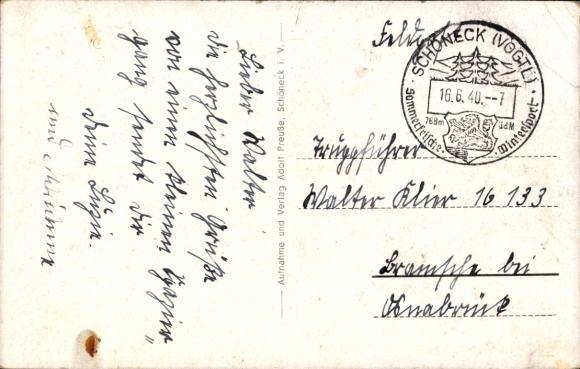 Lieber Walter
die herzlichsten Grüße
von einem kleinen Spazier„
gang sendet dir
deine Luzie.
und
Aufnahme und Verlag Adolf Preuße, Schöneck i. V.
Feldpost
SCHÖNECK (VOGTL)
16.6.40.--7
768m
Sommerfrische · Wintersport
Truppführer
Walter Klier 16 133
Bramsche bei
Osnabrück